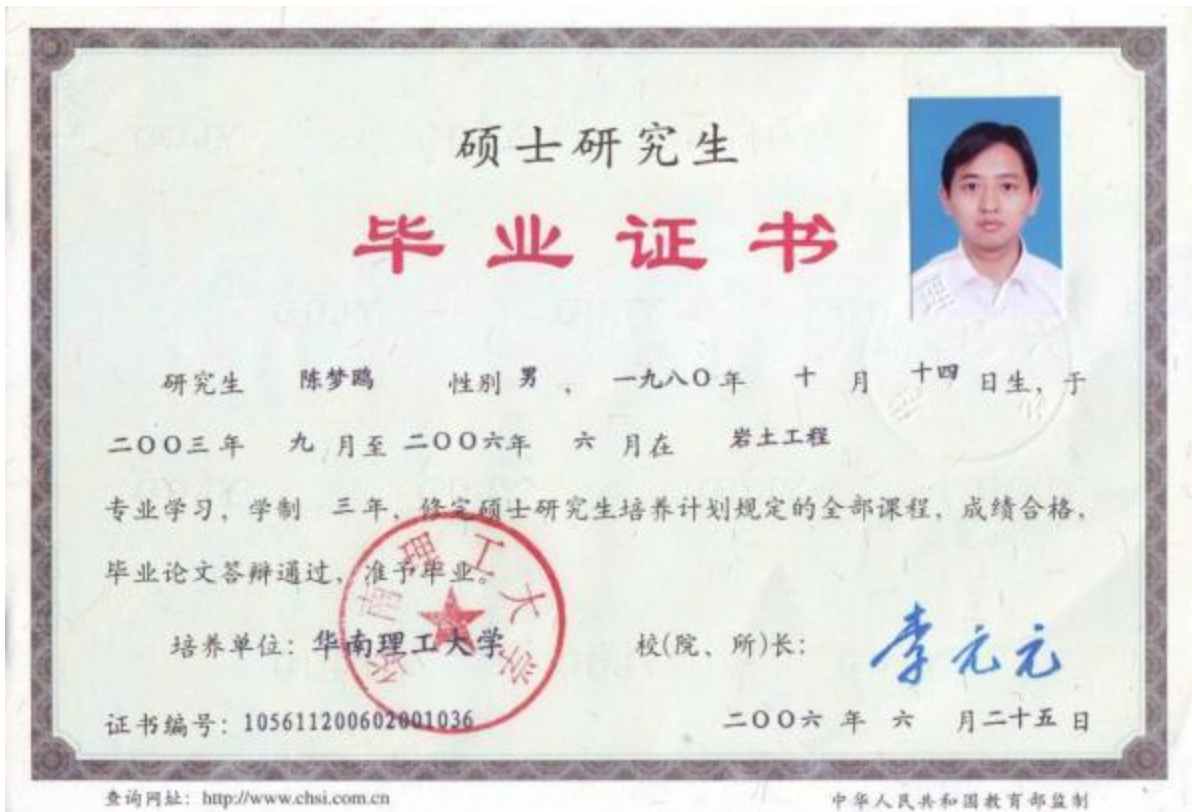 硕士研究生
毕业证书
研究生 陈梦鸥 性别 男 ， 一九八〇年 十 月 十四 日生，于
二〇〇三年 九 月至 二〇〇六年 六 月在 岩土工程
专业学习，学制 三年，修完硕士研究生培养计划规定的全部课程，成绩合格，
毕业论文答辩通过，准予毕业。
华南理工大学
培养单位：华南理工大学 校(院、所)长： 李元元
证书编号：105611200602001036 二〇〇六 年 六 月二十五日
查询网址：http://www.chsi.com.cn 中华人民共和国教育部监制